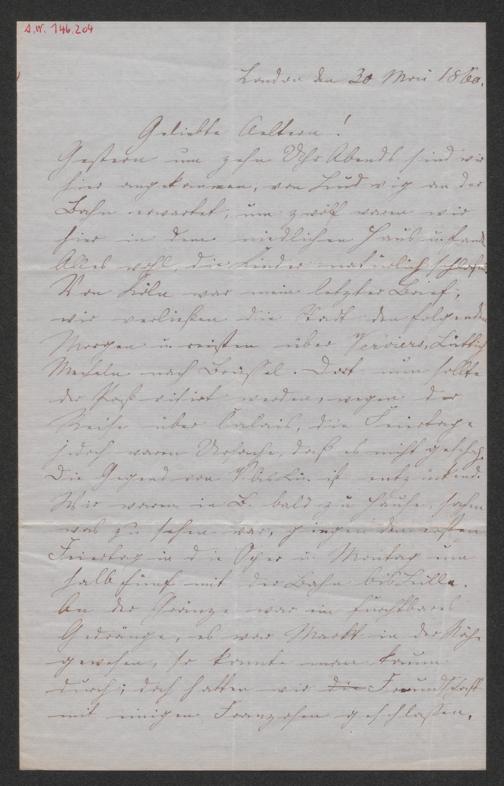 A.W. 146.204
London den 30 Mai 1860.
Geliebte Aeltern!
Gestern um zehn Uhr Abends sind wir
hier angekommen, von Ludwig an der
Bahn erwartet, um zwölf waren wir
hier in dem niedlichen Haus u. fand
Alles wohl, die Kinder natürlich schlafen
Von Köln war mein letzter Brief,
wir verließen die Stadt den folgenden
Morgen u reisten über Verviers, Lüttich
Mecheln nach Brüssel. Dort nun sollte
der Paß visirt werden, wegen der
Reise über Calais, die Feiertage
jedoch waren Ursache, daß es nicht geschah.
Die Gegend von ist entzückend.
Wir waren in B. bald zu Hause, sahen
was zu sehen war, gingen den ersten
Feiertag in die Oper u Montag um
halb fünf mit der Bahn bis Lille.
An der Gränze war ein furchtbares
Gedränge, es war Markt in der Nähe
gewesen, so konnte man kaum
durch; doch hatten wir die Freundschaft
mit einigen Franzosen geschlossen,